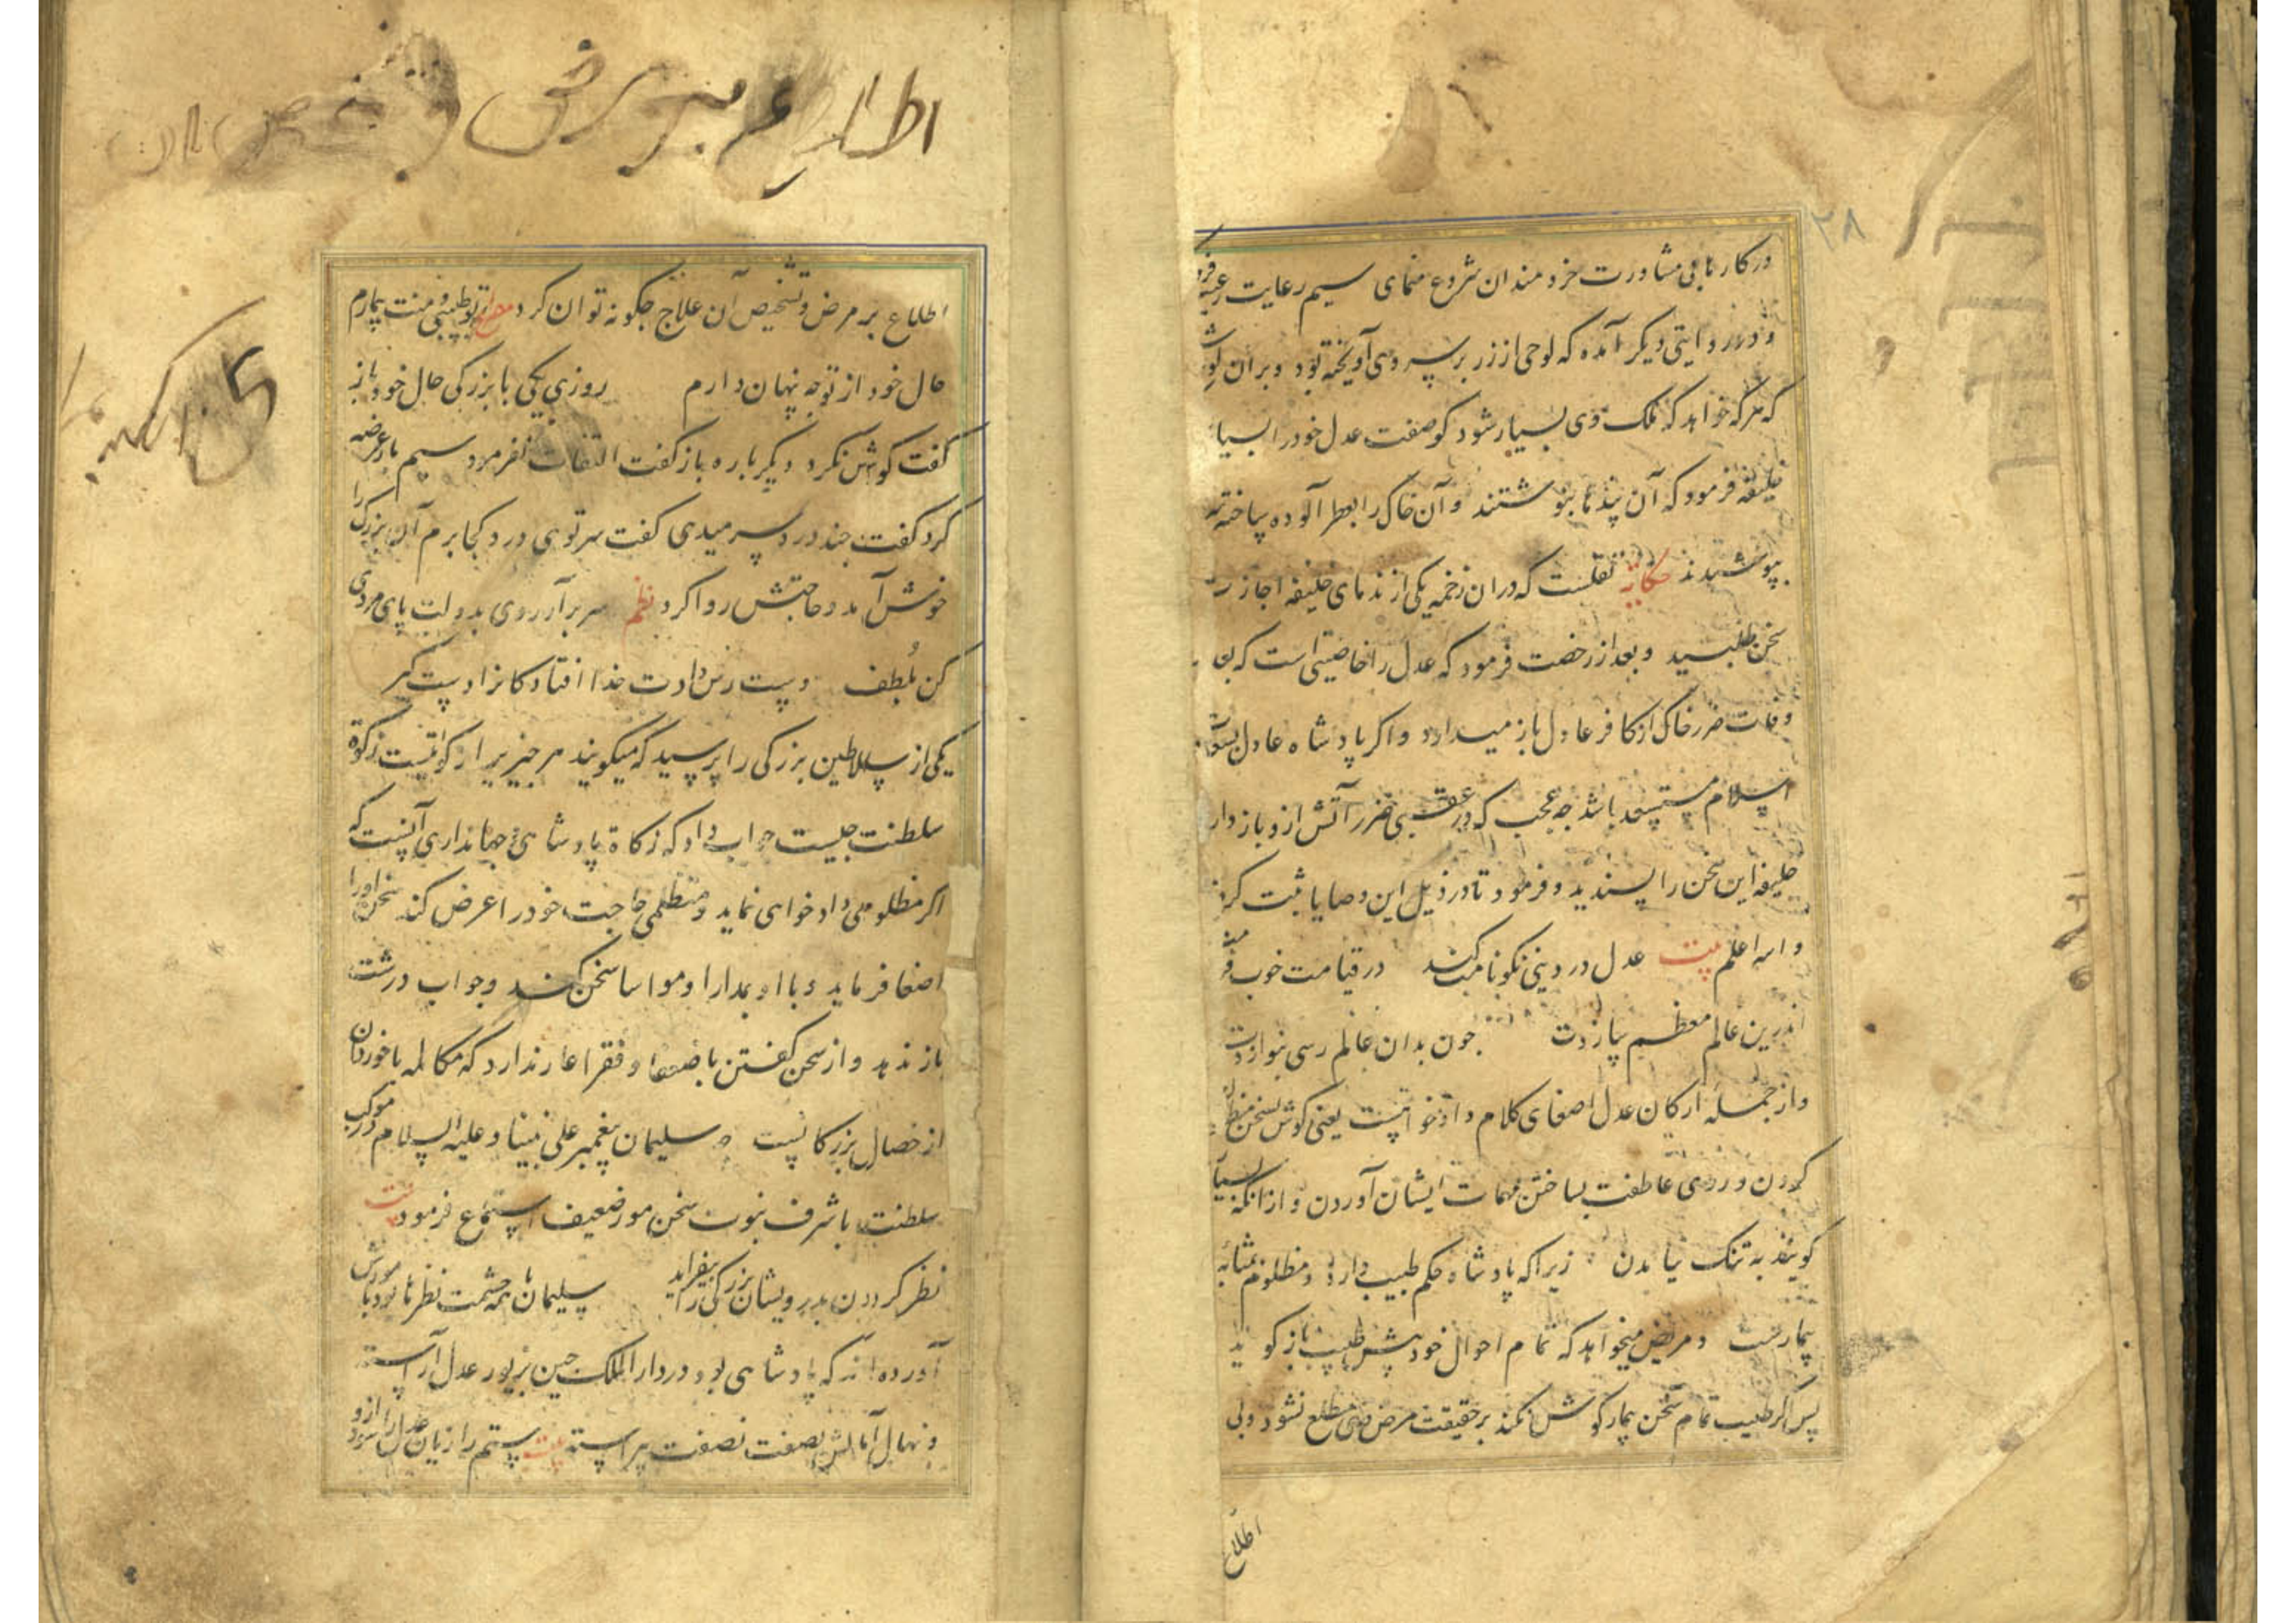 ۲۸
در کارها بی مشاورت خردمندان شروع منمای سیم رعایت رعیت فرو
و در روایتی دیکر آمده که لوحی از زر بر سر وی آویخته بود و بر ان لوح
که هر که خواهد که ملک وی بسیار شود کو صفت عدل خود را بسیار
خلیفه فرمود که آن پندها بنوشتند و آن خاک را بعطر آلوده ساخته
بپوشیدند حکایة نقلست که دران زخمه یکی از ندمای خلیفه اجازت
سخن طلبید و بعد از رخصت فرمود که عدل را خاصیتی است که بعد
وفات ضرر خاک از کافر عادل باز میدارد و اکر پادشاه عادل بسعادت
اسلام مستسعد باشد جه عجب که در عقبی ضرر آتش ازو باز دارد
خلیفه این سخن را پسندید و فرمود تا در ذیل این وصایا ثبت کردند
والله اعلم بیت عدل در دینی نکونامت کند در قیامت خوب
اندرین عالم معظم سازدت جون بدان عالم رسی بنوازدت
و از جمله ارکان عدل اصغای کلام دادخواهست یعنی کوش بسخن
کردن و روی عاطفت بساختن مهمات ایشان آوردن و از آنکه بسیار
کویند به تنک نیامدن زیرا که پادشاه حکم طبیب دارد و مظلوم بمثابه
بیمارست و مریض میخواهد که تمام احوال خود پیش طبیب باز کوید
پس اکر طبیب تمام سخن بیمار کوش نکند بر حقیقت مرض وی مطلع نشود و بی
اطلاع
اطلاع بر مرض و
اطلاع بر مرض و تشخیص آن علاج جکونه توان کرد مصراع تو طبیبی و منت بیمارم
حال خود از تو جه پنهان دارم روزی یکی با بزرکی حال خود باز
کفت کوش نکرد دیکر باره باز کفت التفات نفرمود سیم بار عرضه
کرد کفت جند درد سر میدی کفت سر توی درد کجا برم آن بزرک را
خوش آمد و حاجتش روا کرد نظم سر برآر روی بدولت پای مردی
کن بلطف دست رس دادت خدا افتادکانرا دست کیر
یکی از سلاطین بزرکی را پرسید که میکویند هر جیزیرا زکوتیست زکوة
سلطنت جیست جواب داد که زکاة پادشاهی و جهانداری آنست که
اکر مظلومی دادخواهی نماید و متظلمی حاجت خود را عرض کند سخن او را
اصغا فرماید و با او بمدارا و مواسا سخن کند و جواب درشت
باز ندهد و از سخن کفتن با ضعفا و فقرا عار ندارد که مکالمه با خوردان
از خصال بزرکانست و سلیمان پیغمبر علی نبینا و علیه السلام در موکب
سلطنت با شرف نبوت سخن مور ضعیف استماع فرمود بیت
نظر کردن بدرویشان بزرکی را بیفزاید سلیمان با همه حشمت نظرها بود با مورش
آورده اند که پادشاهی بود در دار الملک جین بزیور عدل آراسته
و نهال آمالش بصفت نصفت پیراسته بیت ستم را زیان عدل را سود ازو